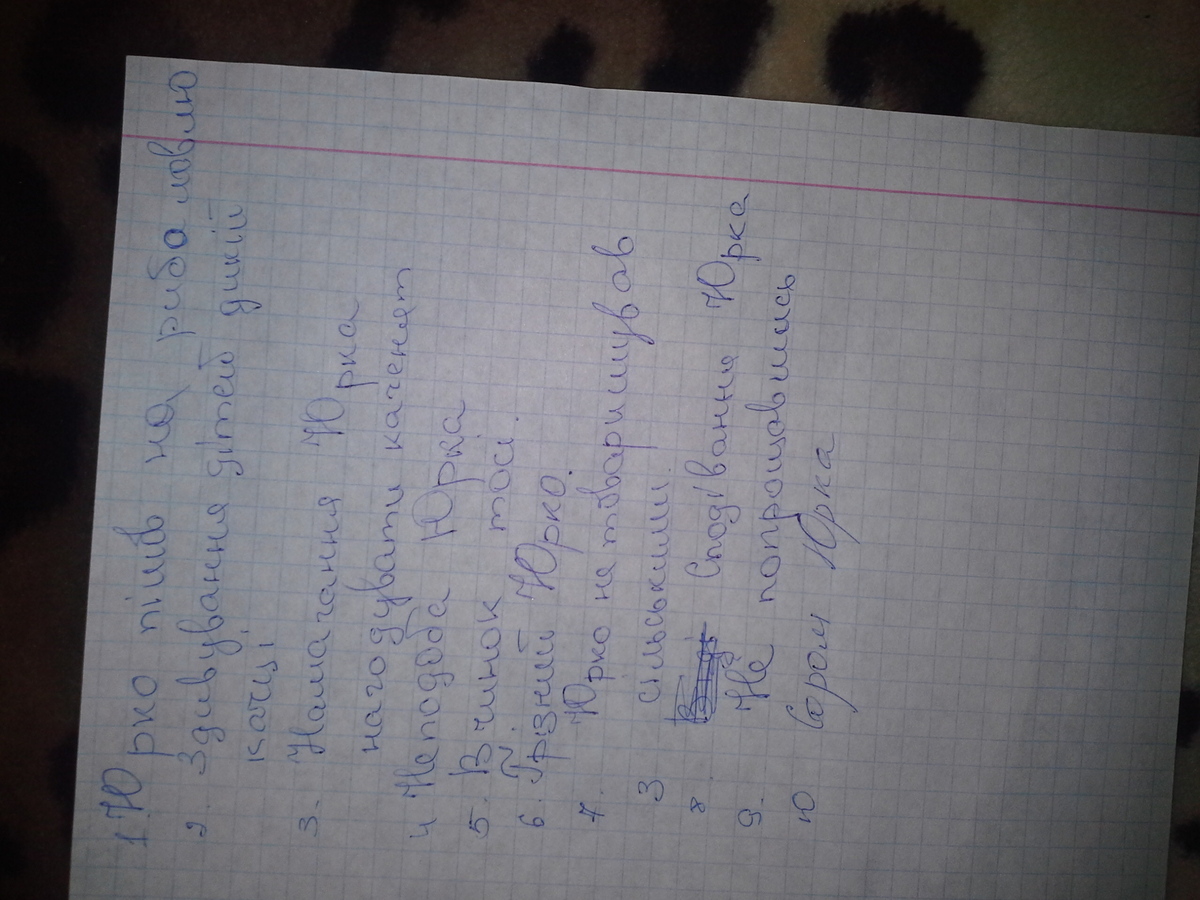 1. Юрко пішов на риба ловлю
2. Здивування дітей дикій
качці
3. Намагання Юрка
нагодувати каченят
4 Неподоба Юрка
5. Вчинок тосі.
6. Грізний Юрко.
7. Юрко не товаришував
З сільськими.
8 Сподівання Юрка
9. Не попрощавшись
10 Сором Юрка